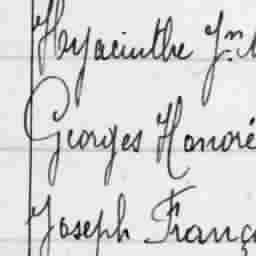 Hyacinthe Jn
Georges Honoré
Joseph Franç